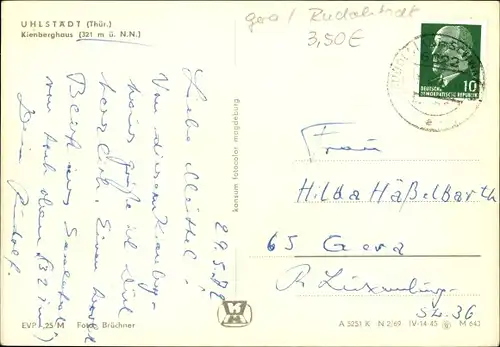 UHLSTÄDT (Thür.)
Kienberghaus (321 m ü. N.N.)
geo / Rudolstadt
3,50€
10
DEUTSCHE
DEMOKRATISCHE REPUBLIK
29.5.72
Liebe Mutter!
Von diesem Kienberg-
haus grüße ich Dich
herzlich. Einen
von hoch oben (321 m)
Dein Rudolf.
konsum fotocolor magdeburg
Frau
Hilda Häßelbarth
65 Gera
R. Luxemburg-
Str. 36
EVP -,25 M Foto: Brüchner
A 5251 K N 2/69 IV-14-45 M 643